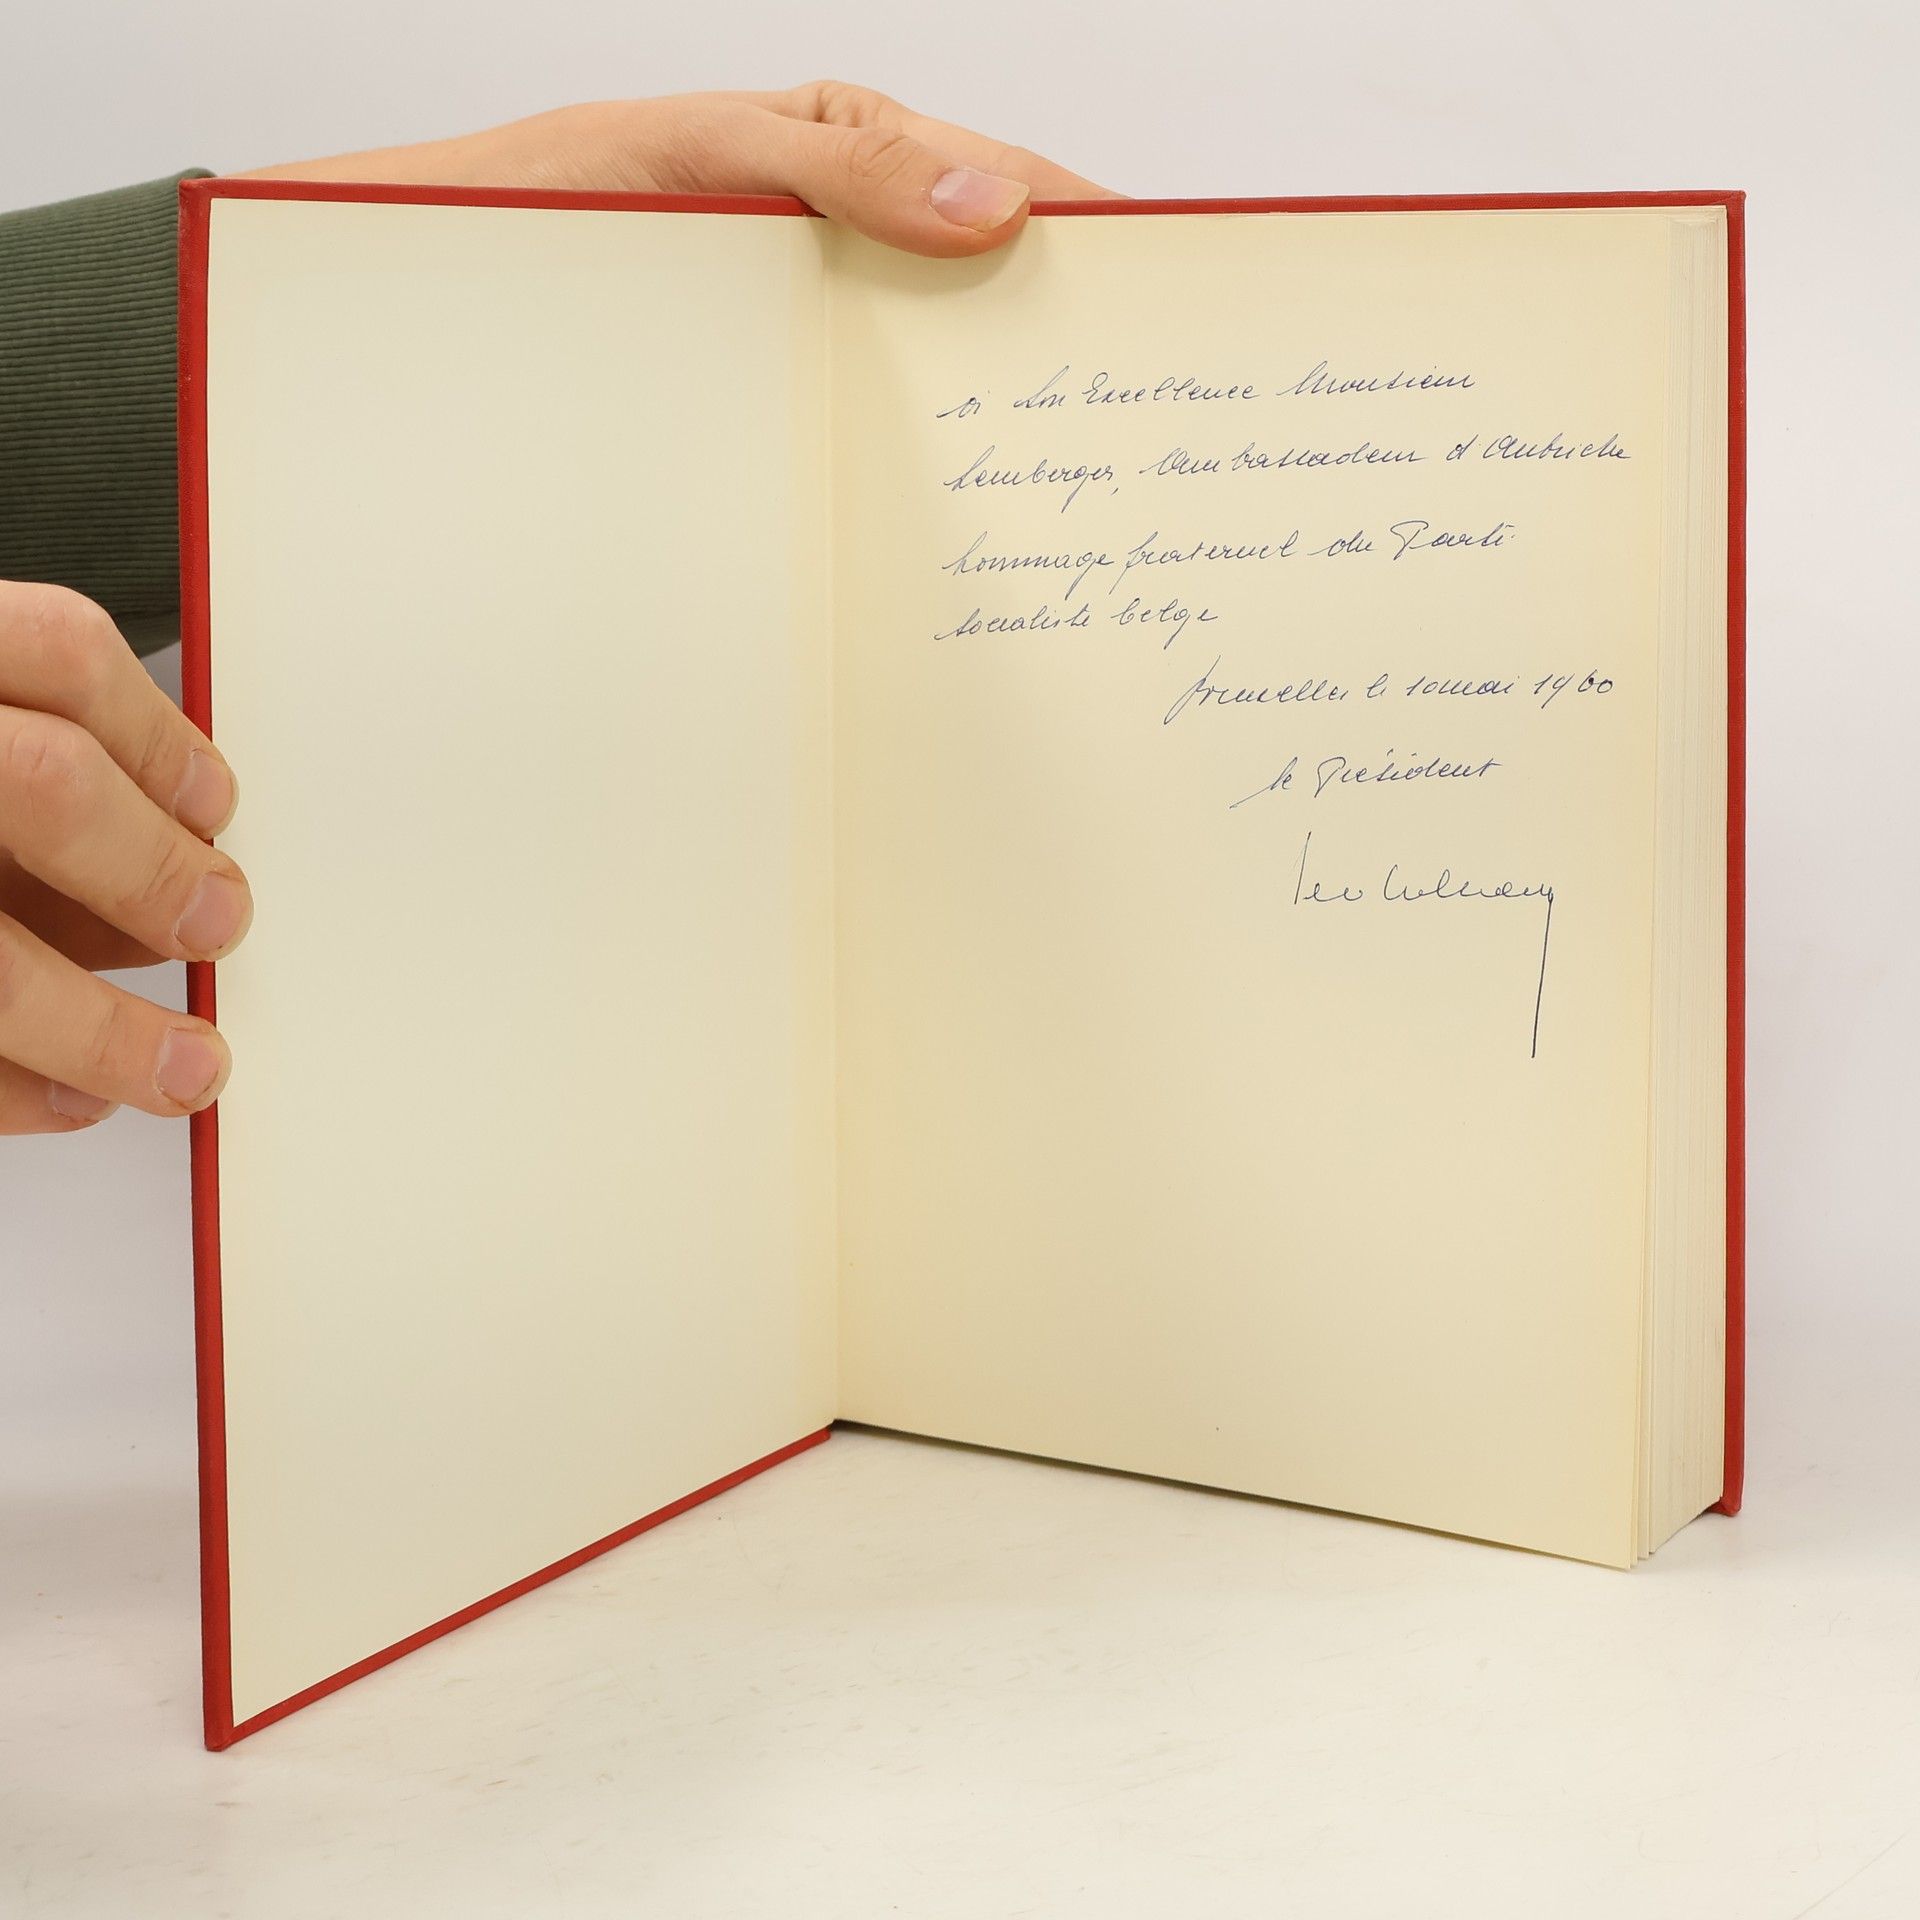 à Son Excellence Monsieur
Lemberger, Ambassadeur d'Autriche
hommage fraternel du Parti
socialiste belge
Bruxelles le 10 mai 1960
le Président
Leo Collard